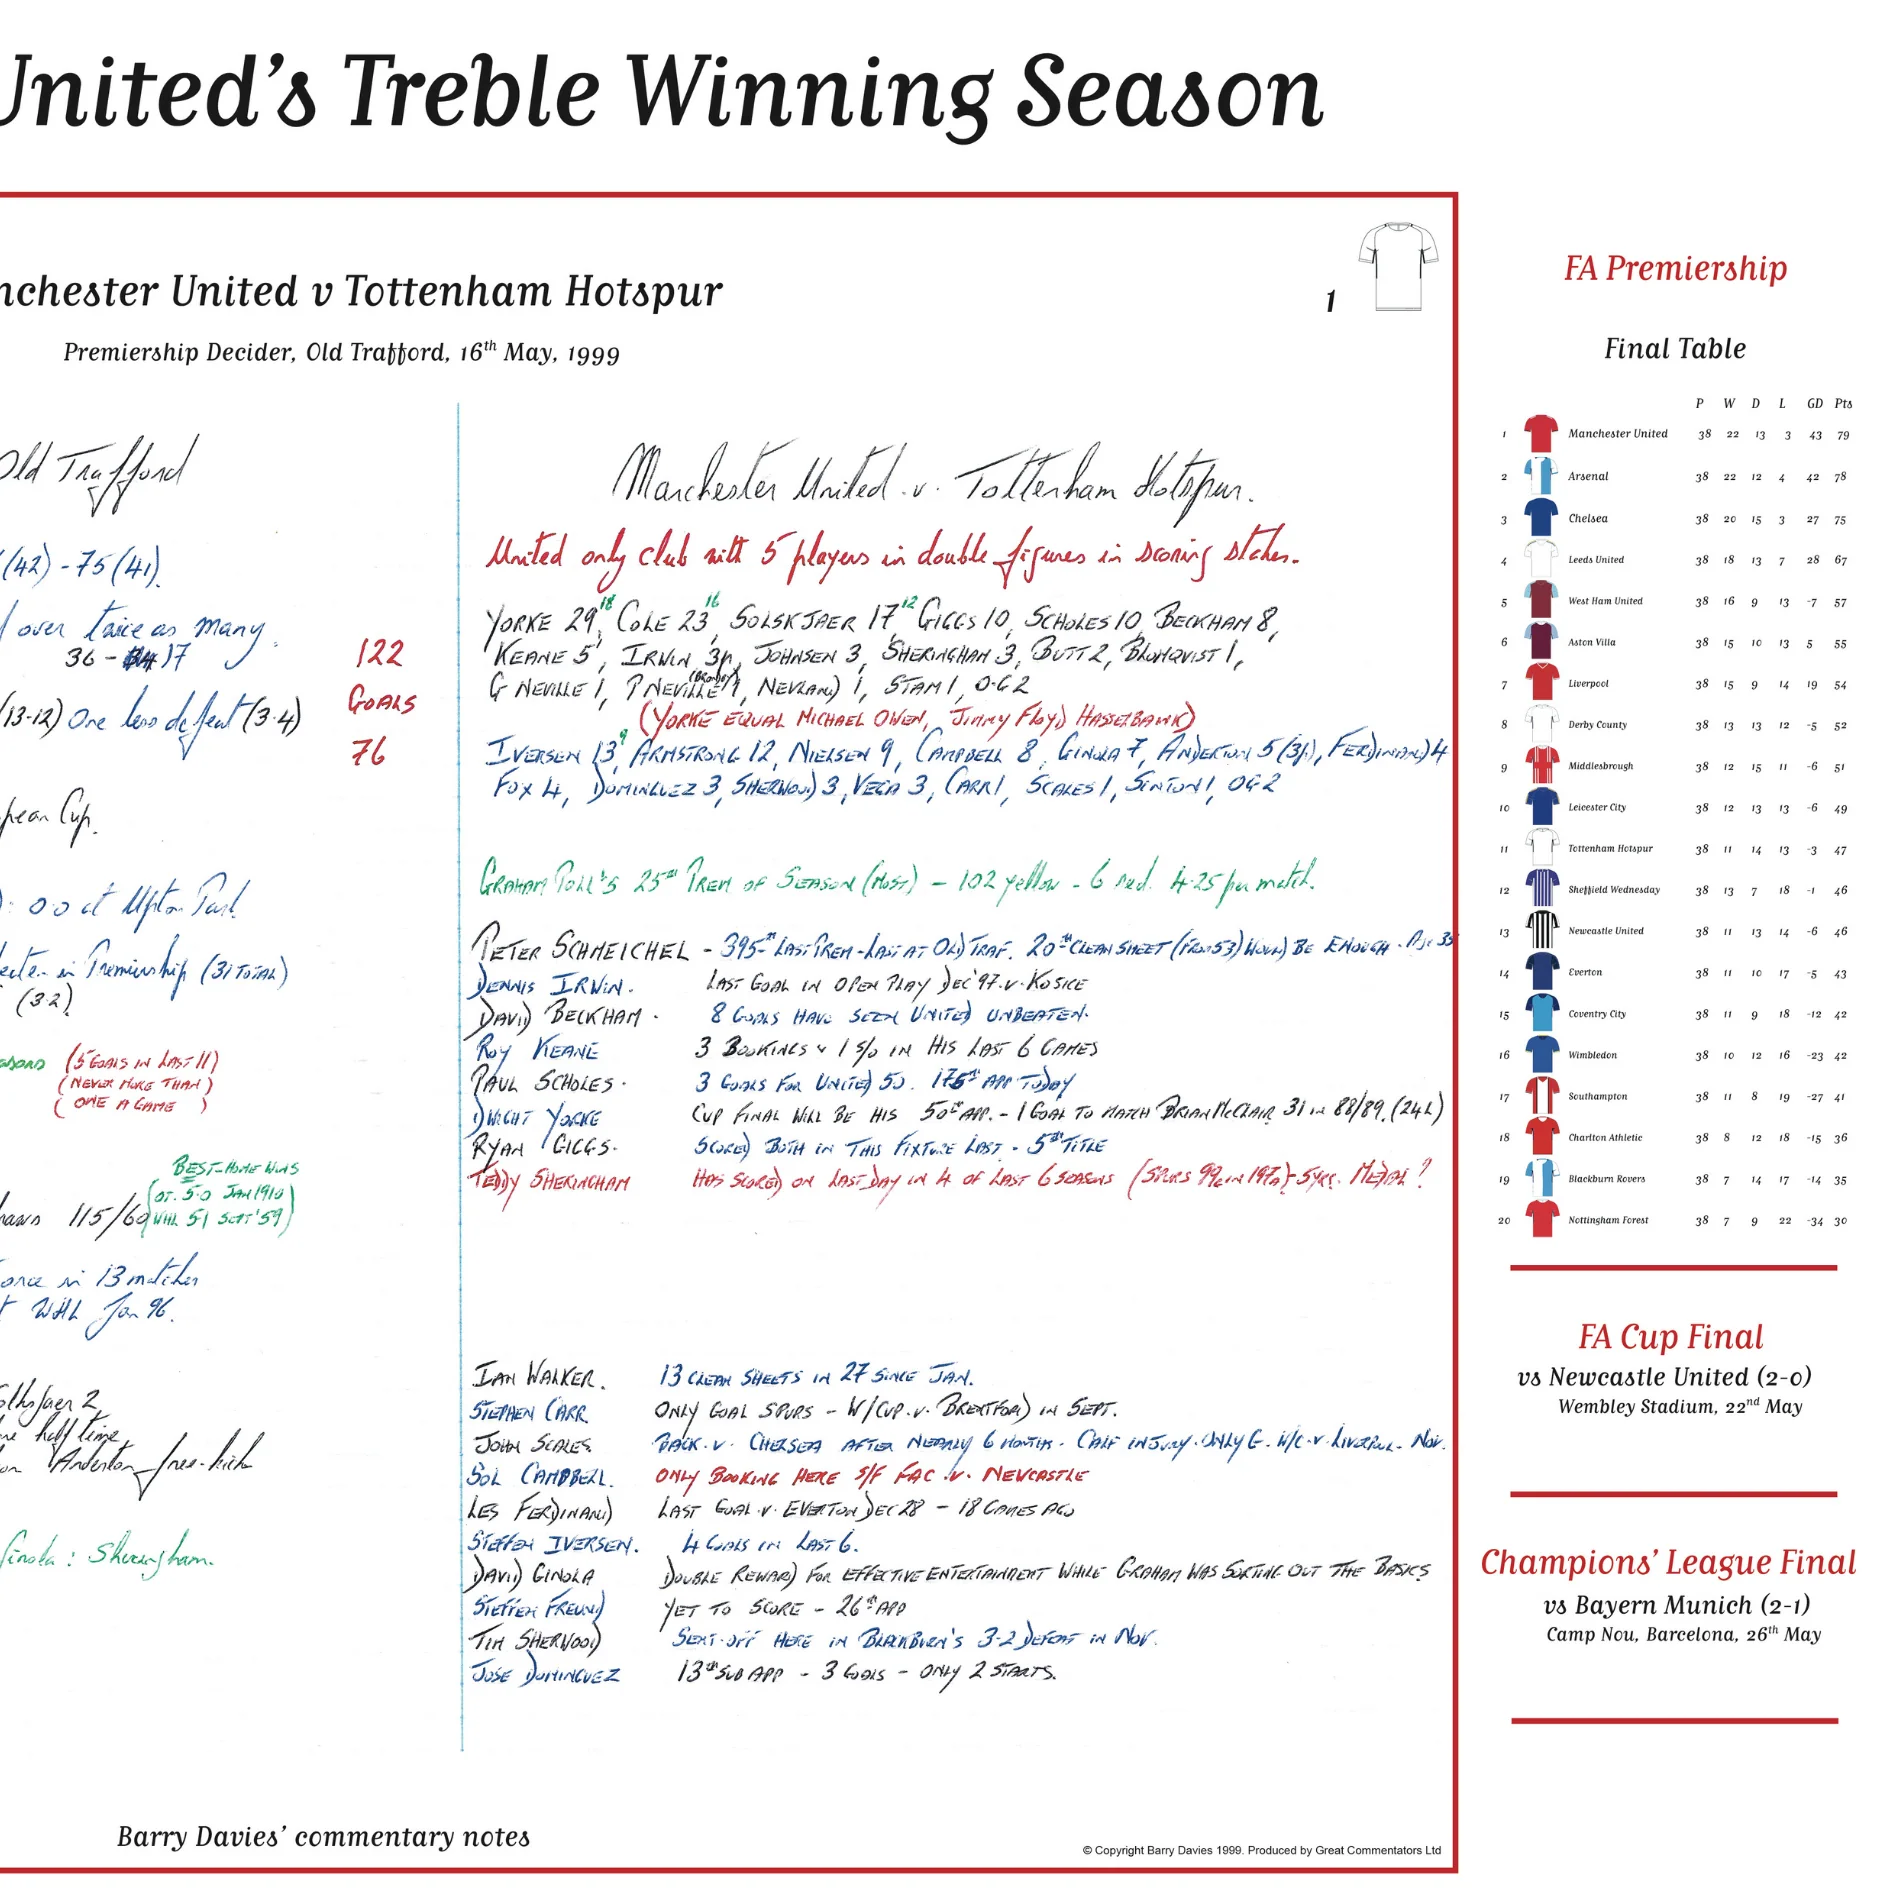 United's Treble Winning Season
nchester United v Tottenham Hotspur
Premiership Decider, Old Trafford, 16th May, 1999
1
Old Trafford
(42) - 75 (41).
over twice as many
36 - 17
(13-12) One less defeat (3-4)
122
GOALS
76
pean Cup.
: 0-0 at Upton Park
in Premiership (31 TOTAL)
(3-2)
(5 GOALS IN LAST 11)
(NEVER MORE THAN)
( ONE A GAME )
BEST-HOME WINS
OT. 5-0 JAN 1910
WHL 5-1 SEPT '59
115/60
once in 13 matches
WHL Jan 96.
2
half time
Anderton free-kick
Ginola : Sheringham.
Manchester United v. Tottenham Hotspur.
United only club with 5 players in double figures in scoring stakes.
YORKE 29 18, COLE 23 16, SOLSKJAER 17 12 GIGGS 10, SCHOLES 10, BECKHAM 8,
KEANE 5, IRWIN 3p, JOHNSEN 3, SHERINGHAM 3, BUTT 2, BLOMQVIST 1,
G NEVILLE 1, P NEVILLE 1 (BRONDBY), NEVLAND 1, STAM 1, OG 2
(YORKE EQUAL MICHAEL OWEN, JIMMY FLOYD HASSELBAINK)
IVERSEN 13 9, ARMSTRONG 12, NIELSEN 9, CAMPBELL 8, GINOLA 7, ANDERTON 5 (3p), FERDINAND 4
FOX 4, DOMINGUEZ 3, SHERWOOD 3, VEGA 3, CARR 1, SCALES 1, SINTON 1, OG 2
GRAHAM POLL'S 25TH PREM OF SEASON (MOST) - 102 yellow - 6 red. 4.25 per match.
PETER SCHMEICHEL - 395TH LAST PREM - LAST AT OLD TRAF. 20TH CLEAN SHEET (FROM 53) WOULD BE ENOUGH - AGE 35
DENNIS IRWIN. LAST GOAL IN OPEN PLAY DEC '97 v. KOSICE
DAVID BECKHAM. 8 GOALS HAVE SEEN UNITED UNBEATEN.
ROY KEANE 3 BOOKINGS & 1 S/O IN HIS LAST 6 GAMES
PAUL SCHOLES. 3 GOALS FOR UNITED 50. 175TH APP TODAY
DWIGHT YORKE CUP FINAL WILL BE HIS 50TH APP. - 1 GOAL TO MATCH BRIAN McCLAIR 31 IN 88/89. (24L)
RYAN GIGGS. SCORED BOTH IN THIS FIXTURE LAST - 5TH TITLE
TEDDY SHERINGHAM HAS SCORED ON LAST DAY IN 4 OF LAST 6 SEASONS (SPURS 99G IN 197A) - 5 YRS. MEDAL ?
IAN WALKER. 13 CLEAN SHEETS IN 27 SINCE JAN.
STEPHEN CARR ONLY GOAL SPURS - W/CUP. v. BRENTFORD IN SEPT.
JOHN SCALES. BACK. v. CHELSEA AFTER NEARLY 6 MONTHS - CALF INJURY - ONLY G. W/C. v. LIVERPOOL - NOV.
SOL CAMPBELL. ONLY BOOKING HERE S/F FAC. v. NEWCASTLE
LES FERDINAND LAST GOAL v. EVERTON DEC 28 - 18 GAMES AGO
STEFFEN IVERSEN. 4 GOALS IN LAST 6.
DAVID GINOLA DOUBLE REWARD FOR EFFECTIVE ENTERTAINMENT WHILE GRAHAM WAS SORTING OUT THE BASICS
STEFFEN FREUND YET TO SCORE - 26TH APP
TIM SHERWOOD SENT-OFF HERE IN BLACKBURN'S 3-2 DEFEAT IN NOV.
JOSE DOMINGUEZ 13TH SUB APP - 3 GOALS - ONLY 2 STARTS.
Barry Davies' commentary notes
© Copyright Barry Davies 1999. Produced by Great Commentators Ltd
FA Premiership
Final Table
P W D L GD Pts
1 Manchester United 38 22 13 3 43 79
2 Arsenal 38 22 12 4 42 78
3 Chelsea 38 20 15 3 27 75
4 Leeds United 38 18 13 7 28 67
5 West Ham United 38 16 9 13 -7 57
6 Aston Villa 38 15 10 13 5 55
7 Liverpool 38 15 9 14 19 54
8 Derby County 38 13 13 12 -5 52
9 Middlesbrough 38 12 15 11 -6 51
10 Leicester City 38 12 13 13 -6 49
11 Tottenham Hotspur 38 11 14 13 -3 47
12 Sheffield Wednesday 38 13 7 18 -1 46
13 Newcastle United 38 11 13 14 -6 46
14 Everton 38 11 10 17 -5 43
15 Coventry City 38 11 9 18 -12 42
16 Wimbledon 38 10 12 16 -23 42
17 Southampton 38 11 8 19 -27 41
18 Charlton Athletic 38 8 12 18 -15 36
19 Blackburn Rovers 38 7 14 17 -14 35
20 Nottingham Forest 38 7 9 22 -34 30
FA Cup Final
vs Newcastle United (2-0)
Wembley Stadium, 22nd May
Champions' League Final
vs Bayern Munich (2-1)
Camp Nou, Barcelona, 26th May